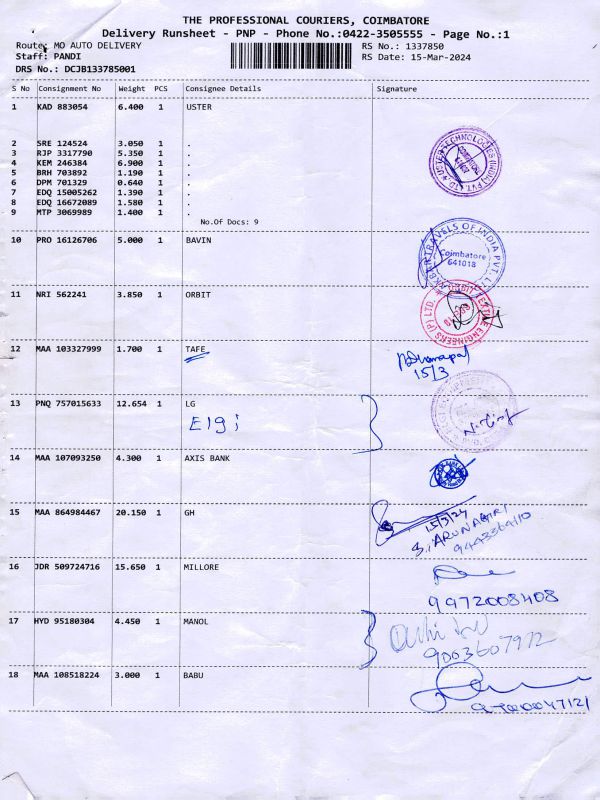 THE PROFESSIONAL COURIERS, COIMBATORE
Delivery Runsheet - PNP - Phone No.:0422-3505555 - Page No.:1
Route: MO AUTO DELIVERY RS No.: 1337850
Staff: PANDI RS Date: 15-Mar-2024
DRS No.: DCJB133785001
S No Consignment No Weight PCS Consignee Details Signature
1 KAD 883054 6.400 1 USTER
2 SRE 124524 3.050 1 .
3 RJP 3317790 5.350 1 .
4 KEM 246384 6.900 1 .
5 BRH 703892 1.190 1 .
6 DPM 701329 0.640 1 .
7 EDQ 15005262 1.390 1 .
8 EDQ 16672089 1.580 1 .
9 MTP 3069989 1.400 1 .
No.Of Docs: 9
10 PRO 16126706 5.000 1 BAVIN
TRAVELS OF INDIA PVT.
Coimbatore
641018
11 NRI 562241 3.850 1 ORBIT
12 MAA 103327999 1.700 1 TAFE
15/3
13 PNQ 757015633 12.654 1 LG
Elgi
14 MAA 107093250 4.300 1 AXIS BANK
15 MAA 864984467 20.150 1 GH
15/3/24
16 JDR 509724716 15.650 1 MILLORE
9972008408
17 HYD 95180304 4.450 1 MANOL
9003607972
18 MAA 108518224 3.000 1 BABU